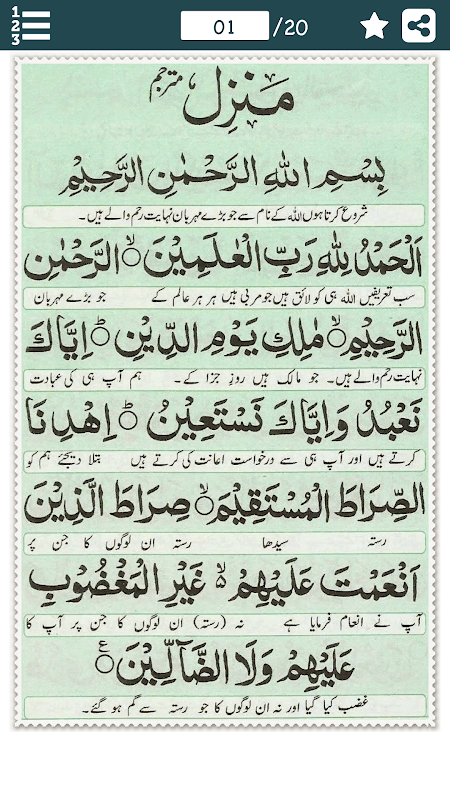 1
2
3
01 /20
مَنزِل مترجم
بِسْمِ اللهِ الرَّحْمٰنِ الرَّحِيْمِ
شروع کرتا ہوں اللہ کے نام سے جو بڑے مہربان نہایت رحم والے ہیں۔
اَلْحَمْدُ لِلّٰهِ رَبِّ الْعٰلَمِيْنَ ۙ الرَّحْمٰنِ
سب تعریفیں اللہ ہی کو لائق ہیں جو مربی ہیں ہر ہر عالم کے جو بڑے مہربان
الرَّحِيْمِ ۙ مٰلِكِ يَوْمِ الدِّيْنِ ؕ اِيَّاكَ
نہایت رحم والے ہیں۔ جو مالک ہیں روز جزا کے۔ ہم آپ ہی کی عبادت
نَعْبُدُ وَاِيَّاكَ نَسْتَعِيْنُ ؕ اِهْدِنَا
کرتے ہیں اور آپ ہی سے درخواست اعانت کی کرتے ہیں بتلا دیجئے ہم کو
الصِّرَاطَ الْمُسْتَقِيْمَ ۙ صِرَاطَ الَّذِيْنَ
رستہ سیدھا رستہ ان لوگوں کا جن پر
اَنْعَمْتَ عَلَيْهِمْ ۙ غَيْرِ الْمَغْضُوْبِ
آپ نے انعام فرمایا ہے نہ (رستہ) ان لوگوں کا جن پر آپ کا
عَلَيْهِمْ وَلَا الضَّآلِّيْنَ ع
غضب کیا گیا اور نہ ان لوگوں کا جو رستہ سے گم ہو گئے۔